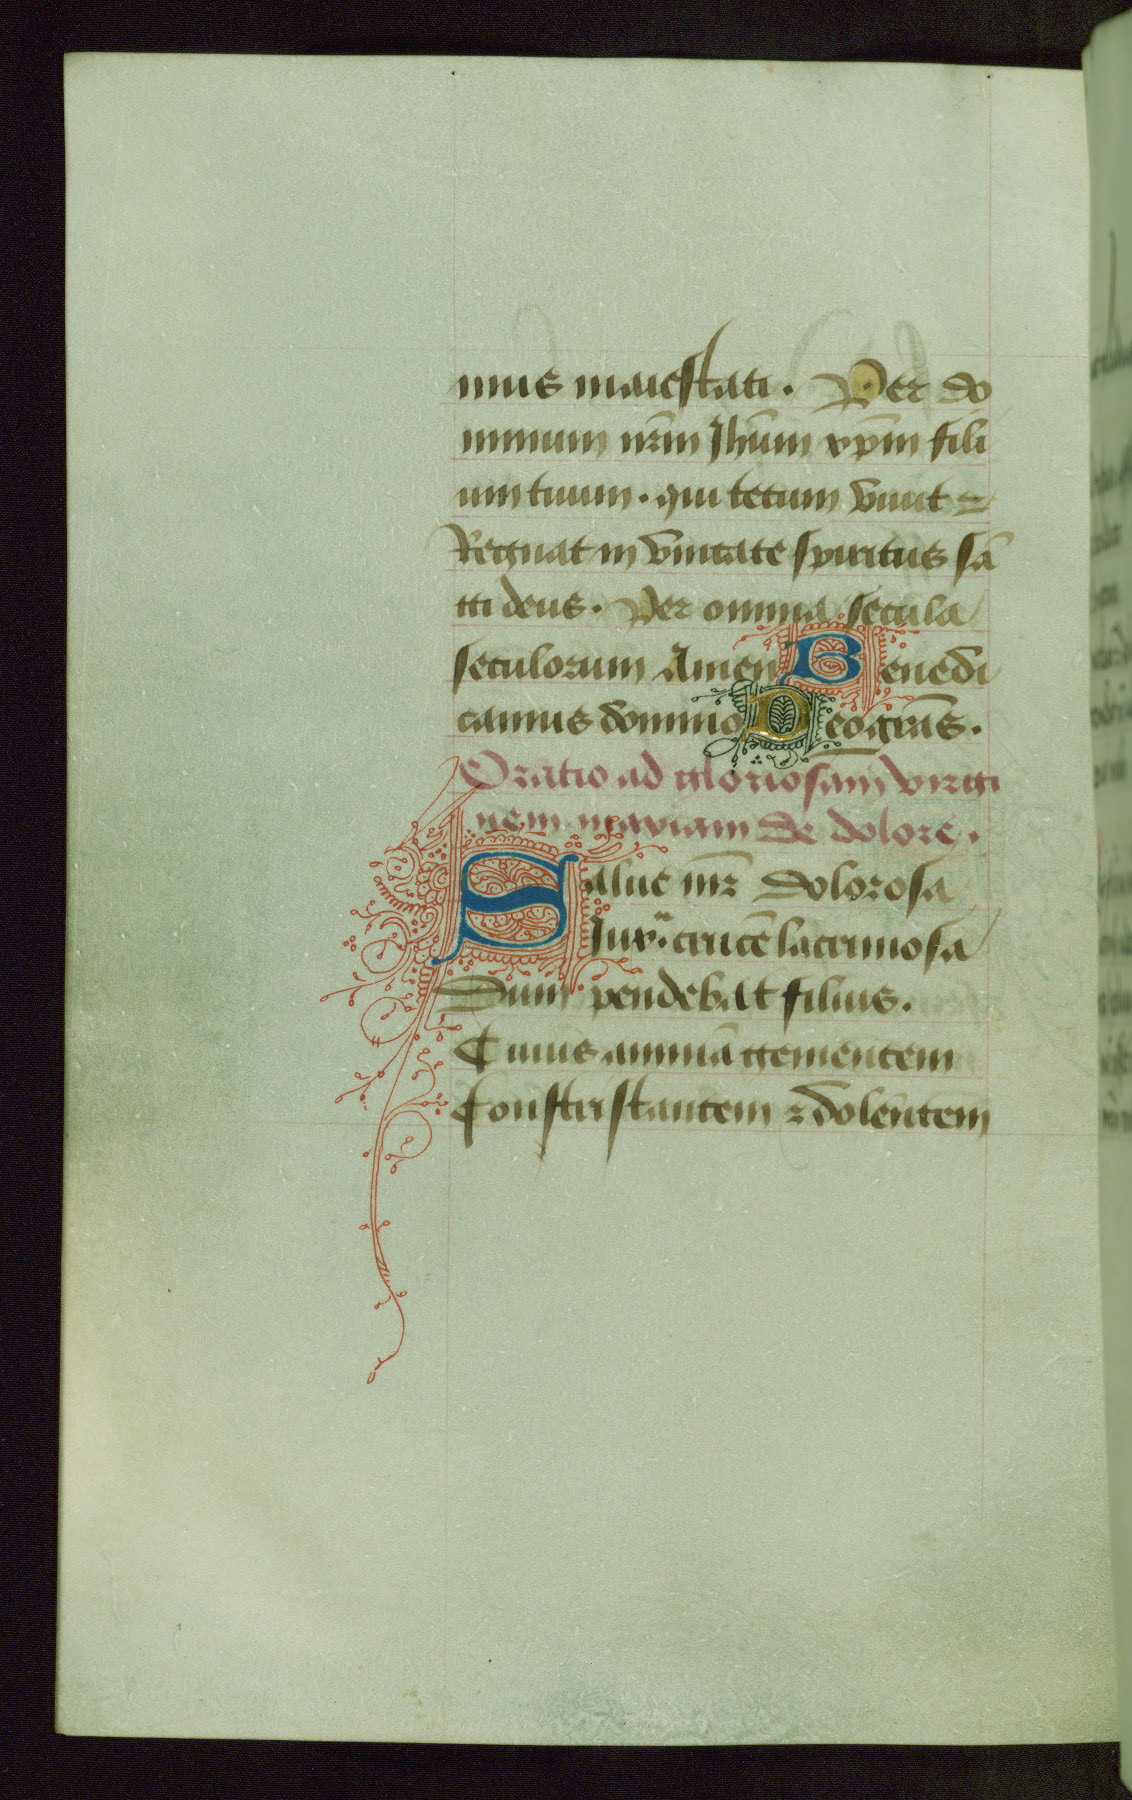 mus maiestati. Per do
minum nr̄m Jhūm xp̄m fili
um tuum. qui tecum viuit ⁊
Regnat in vnitate spiritus sā
cti deus. Per omnia secula
seculorum Amen Benedi
camus domino Deo grās.
Oratio ad gloriosam virgi
nem mariam de dolore.
Salue mr̄ dolorosa
Iuxͣ crucē lacrimosa
Dum pendebat filius.
Cuius animā gementem
Constristantem ⁊ dolentem